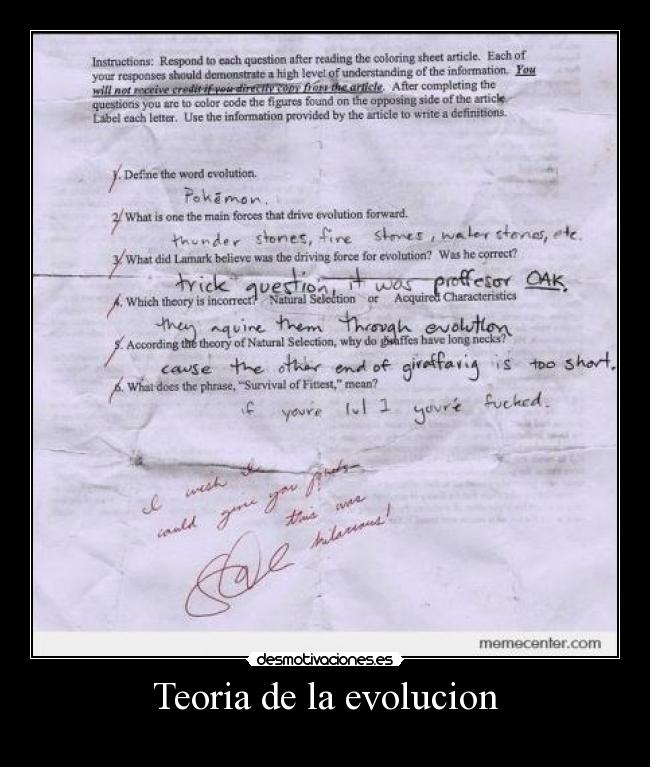 Instructions: Respond to each question after reading the coloring sheet article. Each of
your responses should demonstrate a high level of understanding of the information. You
will not receive credit if you directly copy from the article. After completing the
questions you are to color code the figures found on the opposing side of the article.
Label each letter. Use the information provided by the article to write a definitions.
1. Define the word evolution.
Pokémon.
2. What is one the main forces that drive evolution forward.
thunder stones, fire stones, water stones, etc.
3. What did Lamark believe was the driving force for evolution? Was he correct?
trick question, it was proffesor OAK.
4. Which theory is incorrect? Natural Selection or Acquired Characteristics
they aquire them through evolution
5. According the theory of Natural Selection, why do giraffes have long necks?
cause the other end of giraffarig is too short.
6. What does the phrase, "Survival of Fittest," mean?
if you're lvl 1 you're fucked.
I wish I
could give you points
this was
hilarious!
memecenter.com
desmotivaciones.es
Teoria de la evolucion